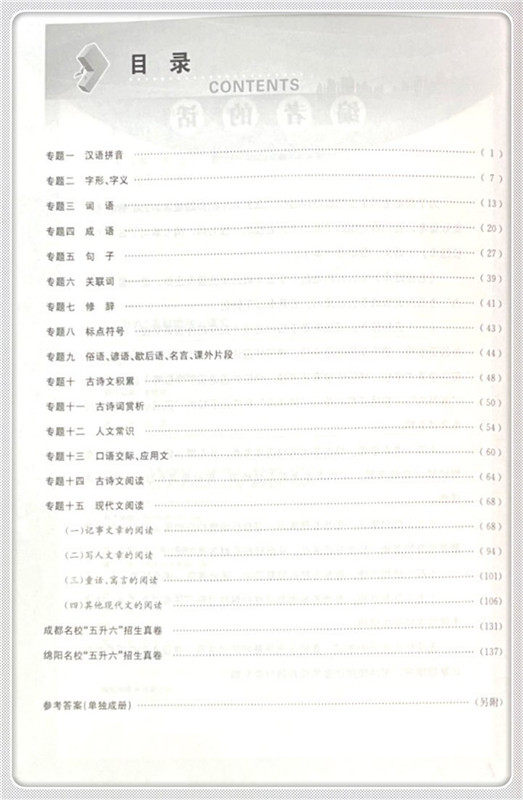 目 录
CONTENTS
专题一 汉语拼音 ……………………………………( 1 )
专题二 字形、字义 ……………………………………( 7 )
专题三 词 语 ……………………………………( 13 )
专题四 成 语 ……………………………………( 20 )
专题五 句 子 ……………………………………( 27 )
专题六 关联词 ……………………………………( 39 )
专题七 修 辞 ……………………………………( 41 )
专题八 标点符号 ……………………………………( 43 )
专题九 俗语、谚语、歇后语、名言、课外片段 ……………………………………( 44 )
专题十 古诗文积累 ……………………………………( 48 )
专题十一 古诗词赏析 ……………………………………( 50 )
专题十二 人文常识 ……………………………………( 54 )
专题十三 口语交际、应用文 ……………………………………( 60 )
专题十四 古诗文阅读 ……………………………………( 64 )
专题十五 现代文阅读 ……………………………………( 68 )
(一)记事文章的阅读 ……………………………………( 68 )
(二)写人文章的阅读 ……………………………………( 94 )
(三)童话、寓言的阅读 ……………………………………(101)
(四)其他现代文的阅读 ……………………………………(106)
成都名校“五升六”招生真卷 ……………………………………(131)
绵阳名校“五升六”招生真卷 ……………………………………(137)
参考答案(单独成册) ……………………………………(另附)